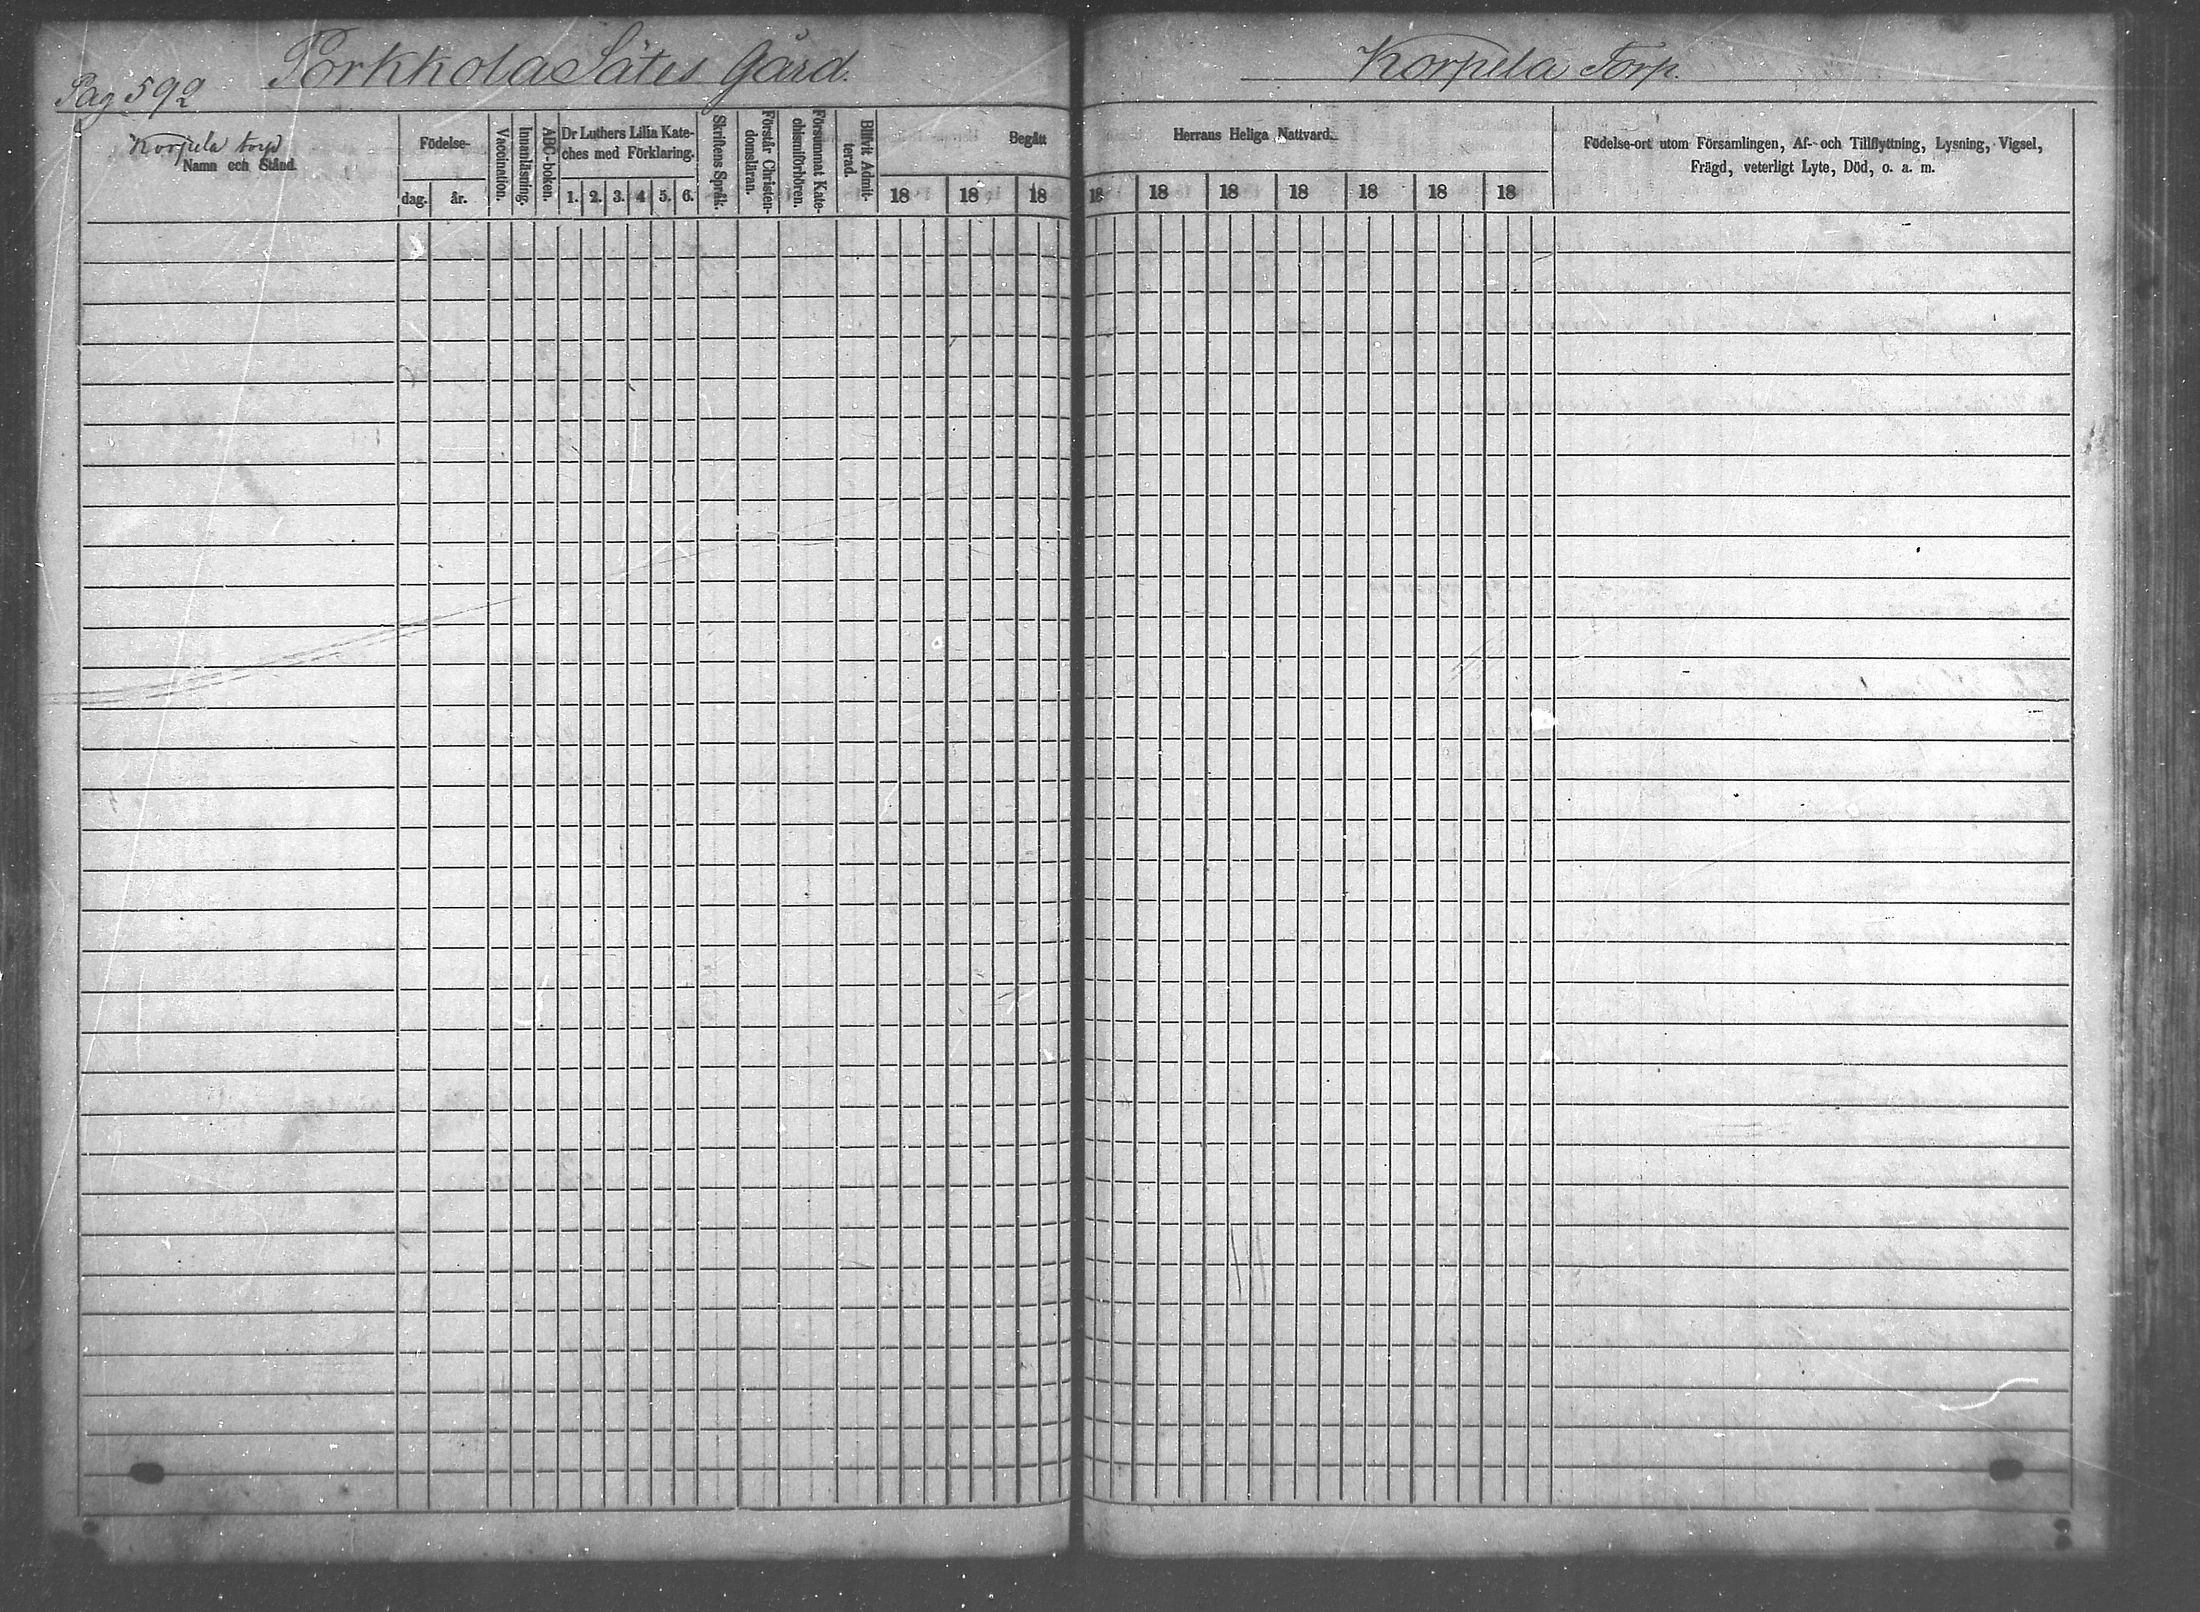 Porkkola Sätes Gård.
Korpela Torp.
Pag 592
Korpela torp
Namn och Stånd.
Födelse-
dag.
år.
Vaccination.
Innanläsning.
ABC-boken.
Dr Luthers Lilla Kate-
ches med Förklaring.
1. 2. 3. 4 5. 6.
Skriftens Språk.
Förstår Christen-
domsläran.
Försummat Kate-
chismiförhören.
Blifvit Admit-
terad.
Begått
Herrans Heliga Nattvard.
18 18 18 18 18 18 18 18 18 18
Födelse-ort utom Församlingen, Af- och Tillflyttning, Lysning, Vigsel,
Frägd, veterligt Lyte, Död, o. a. m.